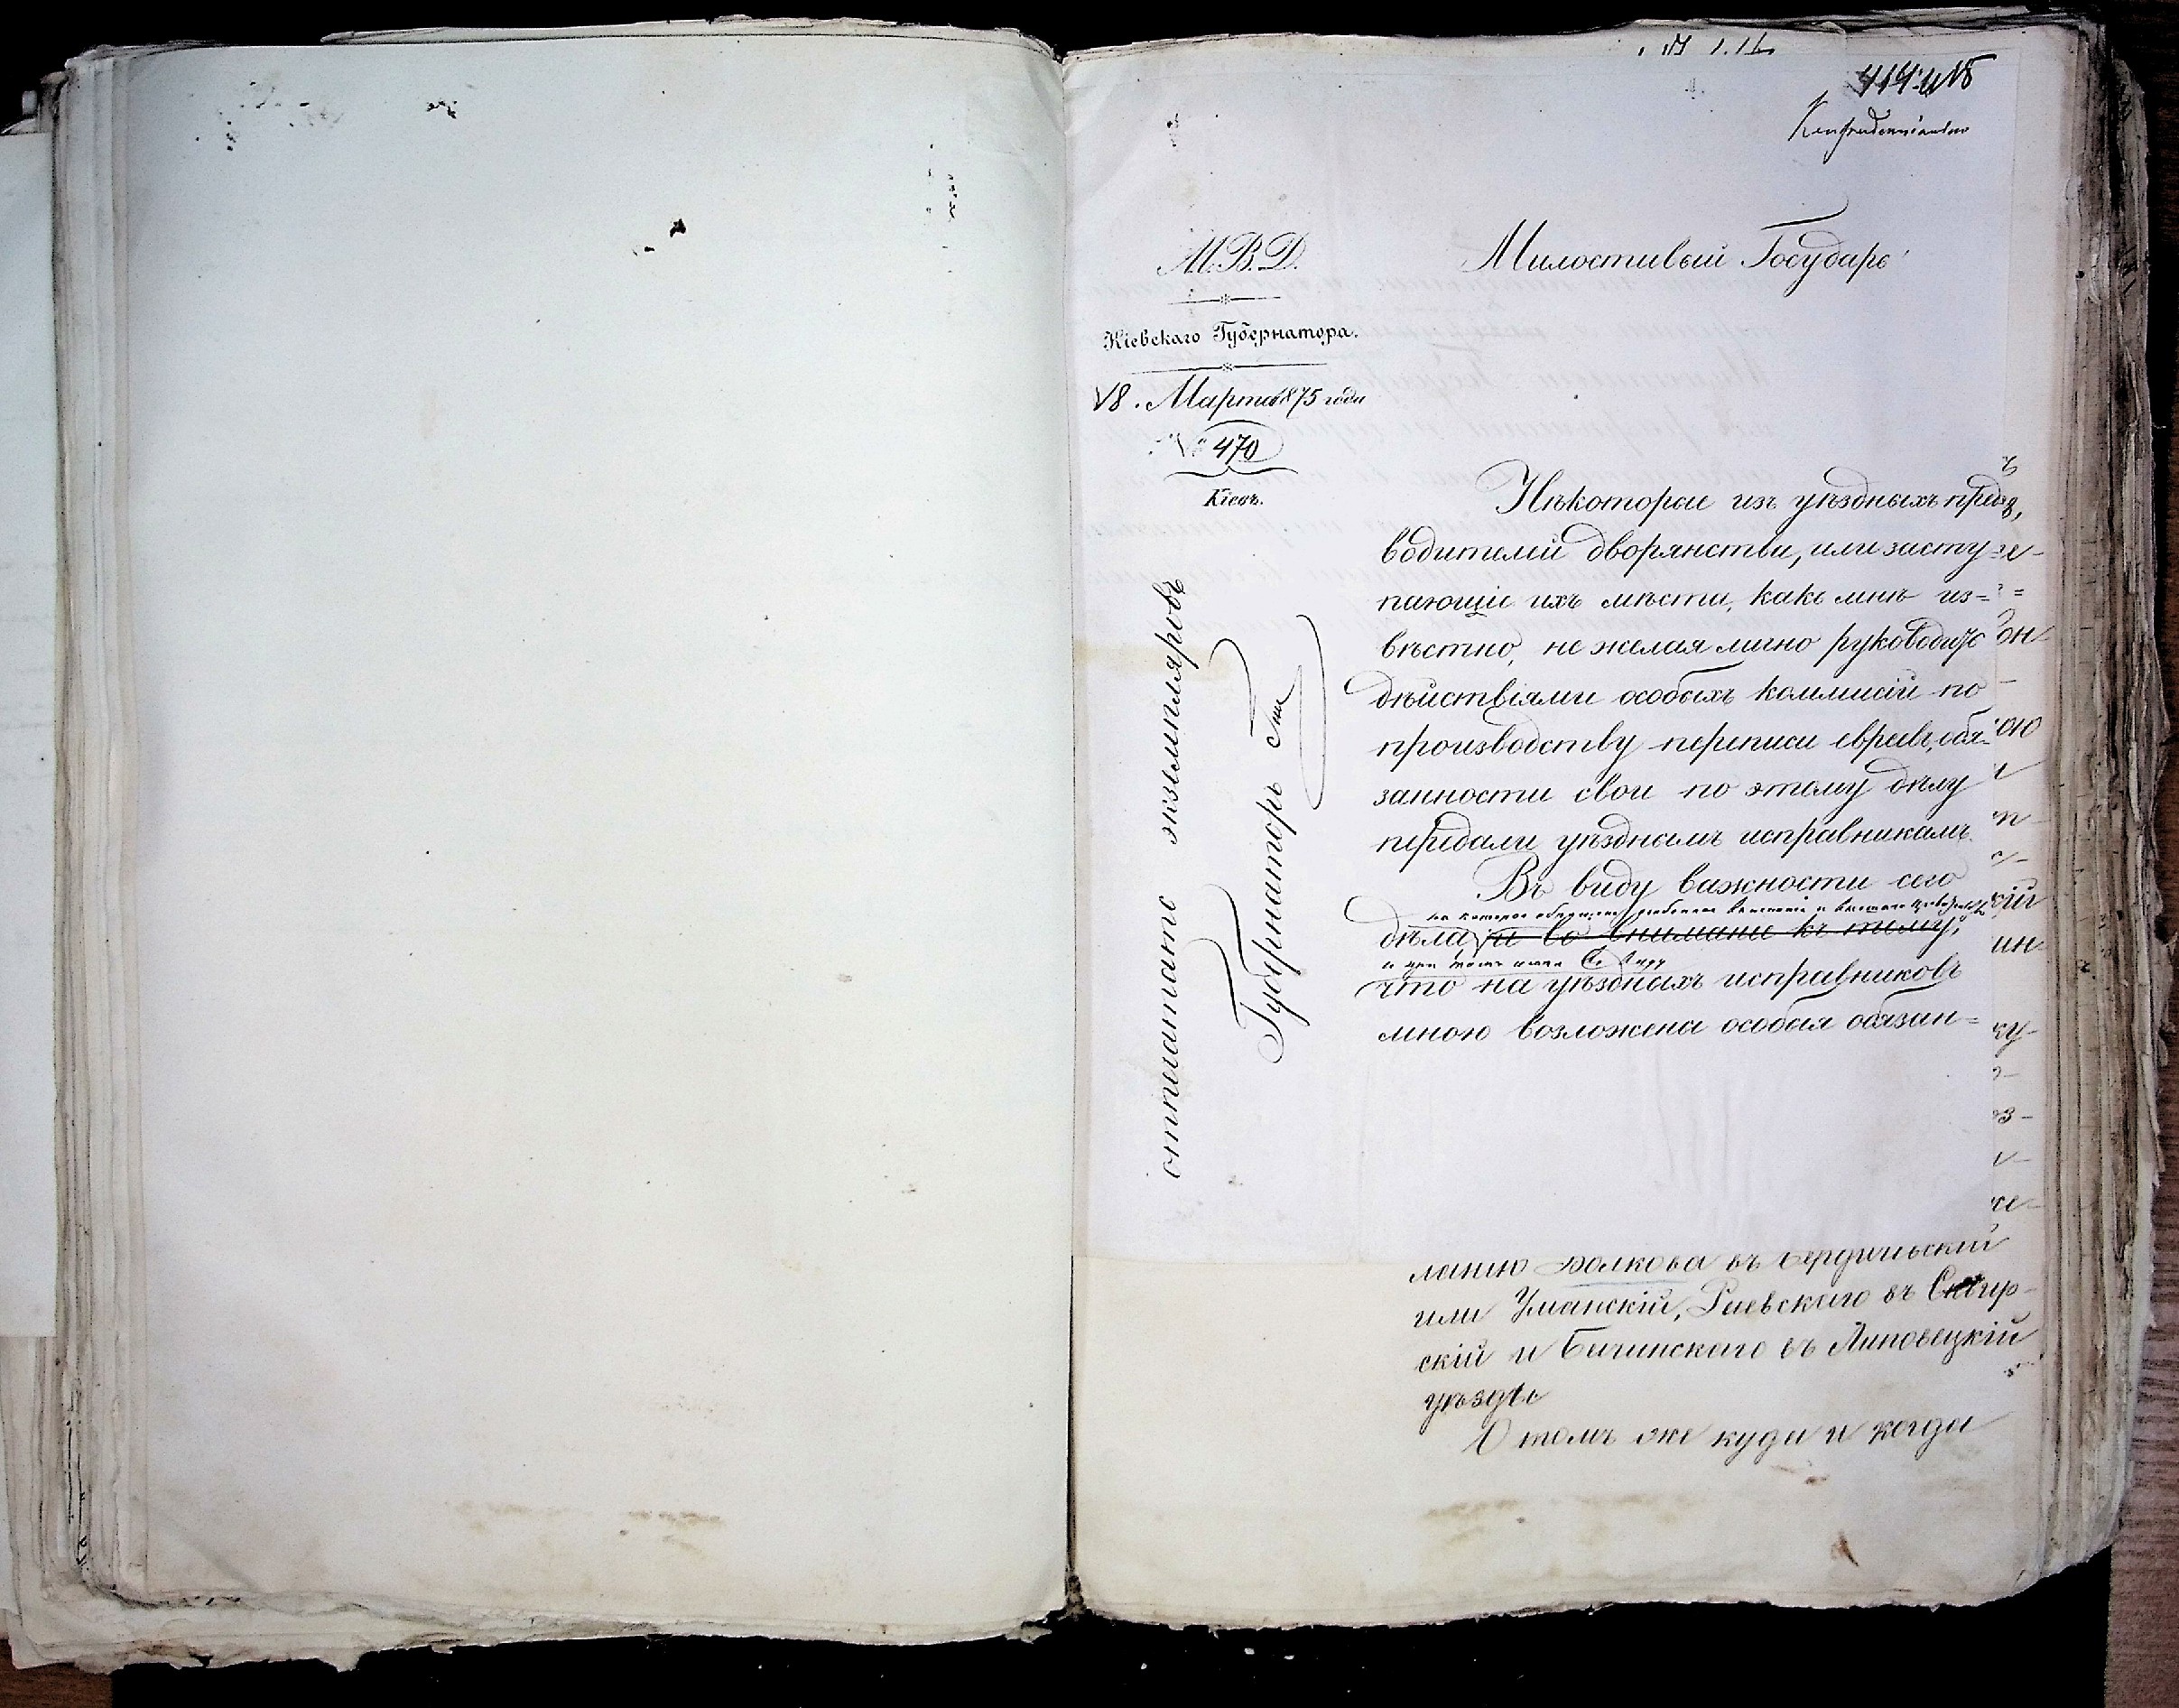 Конфиденціально
М.В.Д.
Кіевскаго Губернатора.
18. Марта 1875 года
№ 470
Кіевъ.
Милостивый Государь
Нѣкоторые изъ уѣздныхъ пред-
водителей дворянства, или засту-
пающіе ихъ мѣста, какъ мнѣ из-
вѣстно, не желая лично руководить
дѣйствіями особыхъ коммисій по
производству переписи евреевъ, обя-
занности свои по этому дѣлу
передали уѣзднымъ исправникамъ.
Въ виду важности сего
на которое обращено особенное вниманіе и
дѣла, и во вниманіе къ тому,
и при томъ имѣя въ виду
что на уѣздныхъ исправниковъ
мною возложена особая обязан=
отпечатать экземпляровъ
Губернаторъ
ланію Волкова въ Бердичевскій
или Уманскій, Раевскаго въ Сквир-
скій и Бичинскаго въ Липовецкій
уѣзды
О томъ же куда и когда